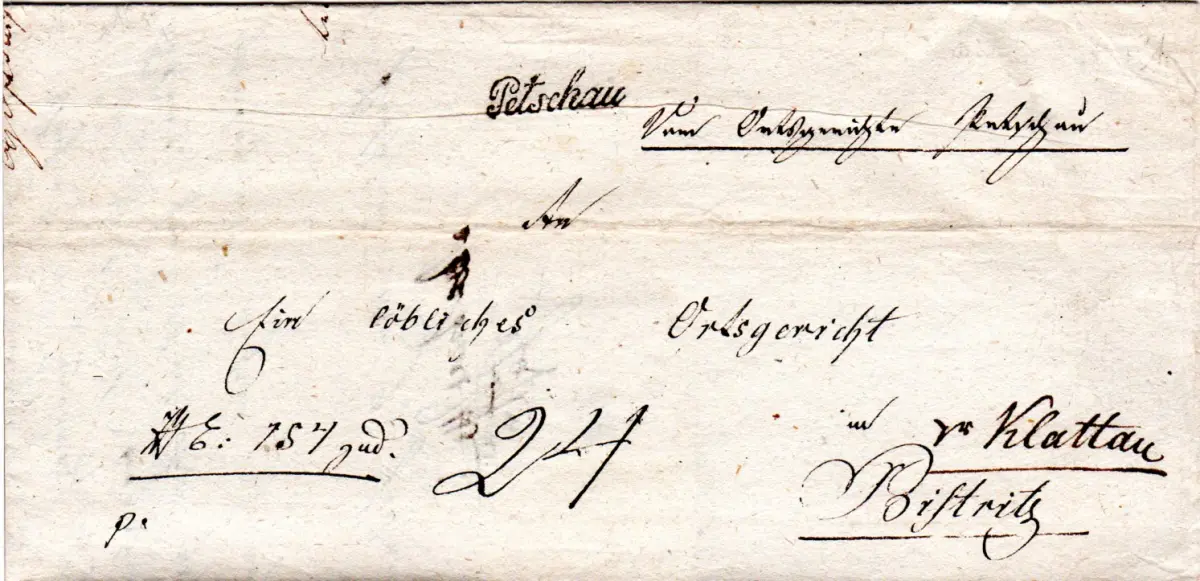 Petschau
Vom Ortsgerichte Petschau
An
Ein löbliches Ortsgericht
E: 757 jud.
24
in pr Klattau
Bistritz
p.